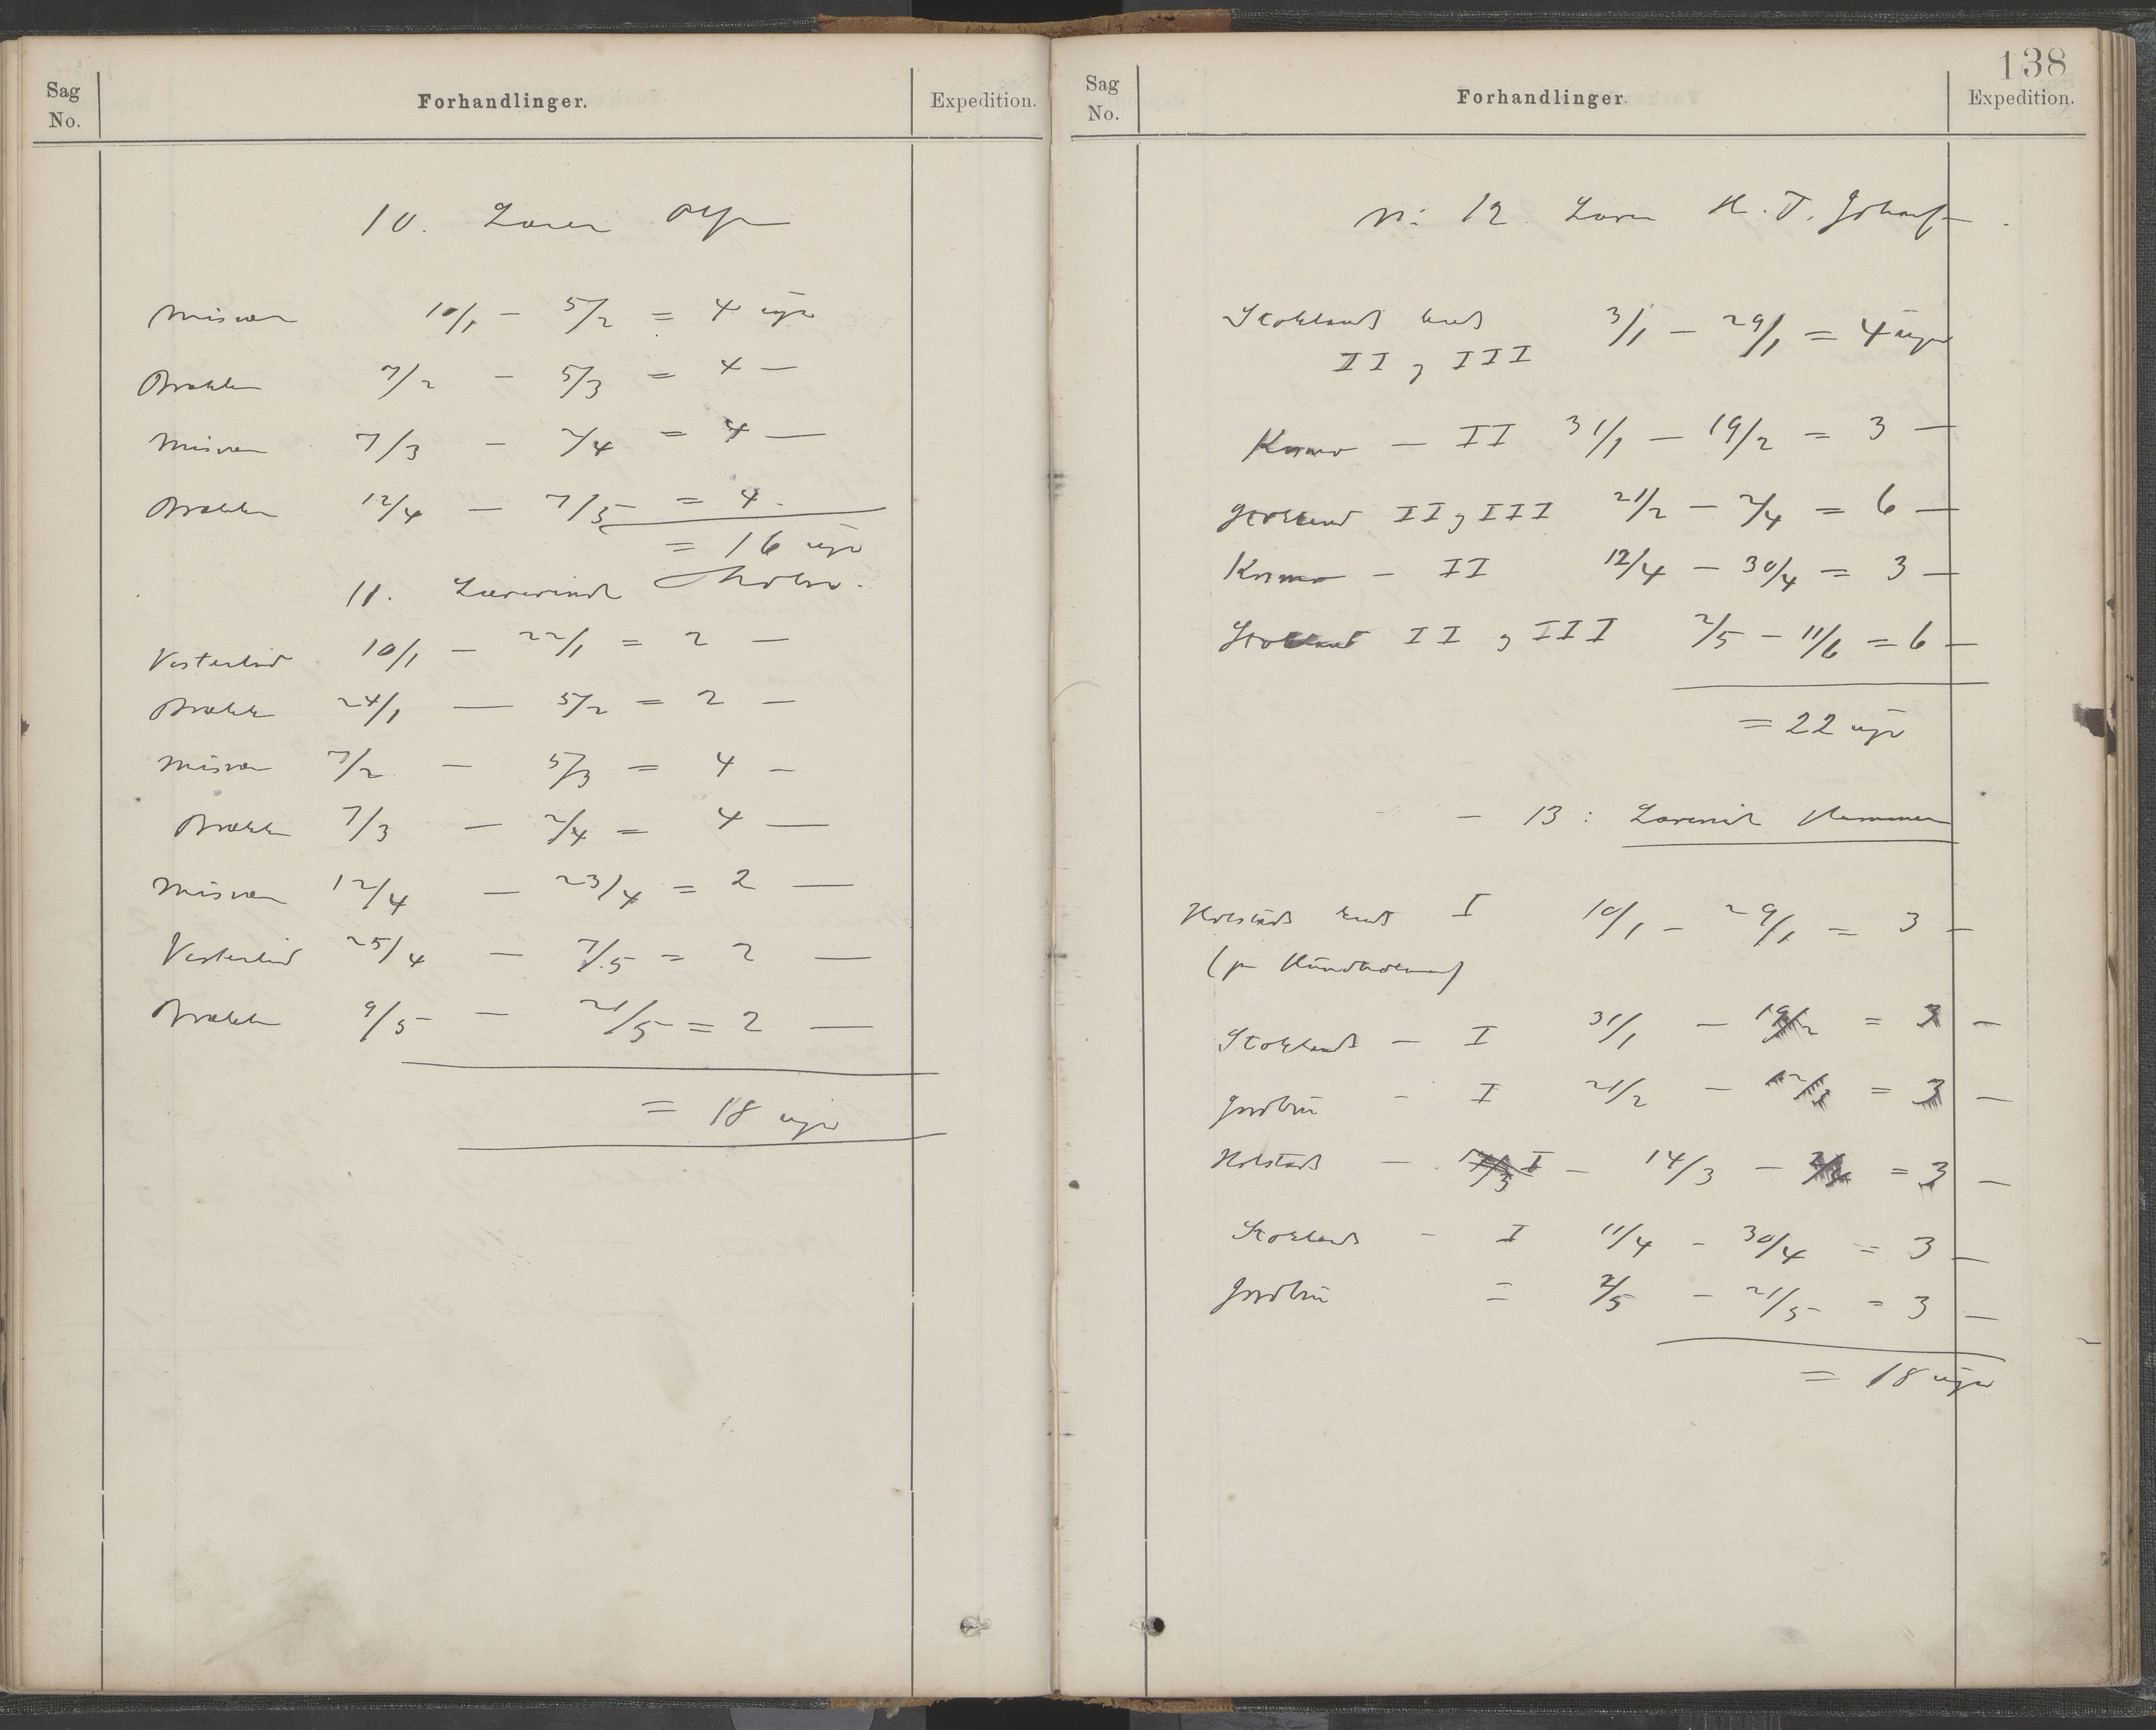 Sag No. Forhandlinger. Expedition.
10. Lærer Olsen
Misvær 10/1 - 5/2 = 4 uger
Brækken 7/2 - 5/3 = 4 —
Misvær 7/3 - 2/4 = 4 —
Brækken 12/4 - 7/5 = 4.
= 16 uger
11. Lærerinde
Vesterlid 10/1 - 22/1 = 2 —
Brækken 24/1 — 5/2 = 2 —
Misvær 7/2 - 5/3 = 4 —
Brækken 7/3 - 2/4 = 4 —
Misvær 12/4 - 23/4 = 2 —
Vesterlid 25/4 - 7/5 = 2 —
Brækken 9/5 - 21/5 = 2 —
= 18 uger
138
Sag No. Forhandlinger. Expedition.
No: 12 Lærer H. J.
Stokland kreds 3/1 - 29/1 = 4 uger
II og III
— II 31/1 - 19/2 = 3 —
Stokland II og III 21/2 - 2/4 = 6 —
- II 12/4 - 30/4 = 3 —
Stokland II og III 2/5 - 11/6 = 6 —
= 22 uger
- 13: Lærerinde
kreds I 10/1 - 29/1 = 3 —
(på
Stoklands — I 31/1 - 19/2 = 3 —
- I 21/2 - 12/3 = 3 —
— I - 14/3 - 2/4 = 3 —
Stoklands - I 11/4 - 30/4 = 3 —
= 2/5 - 21/5 = 3 —
= 18 uger